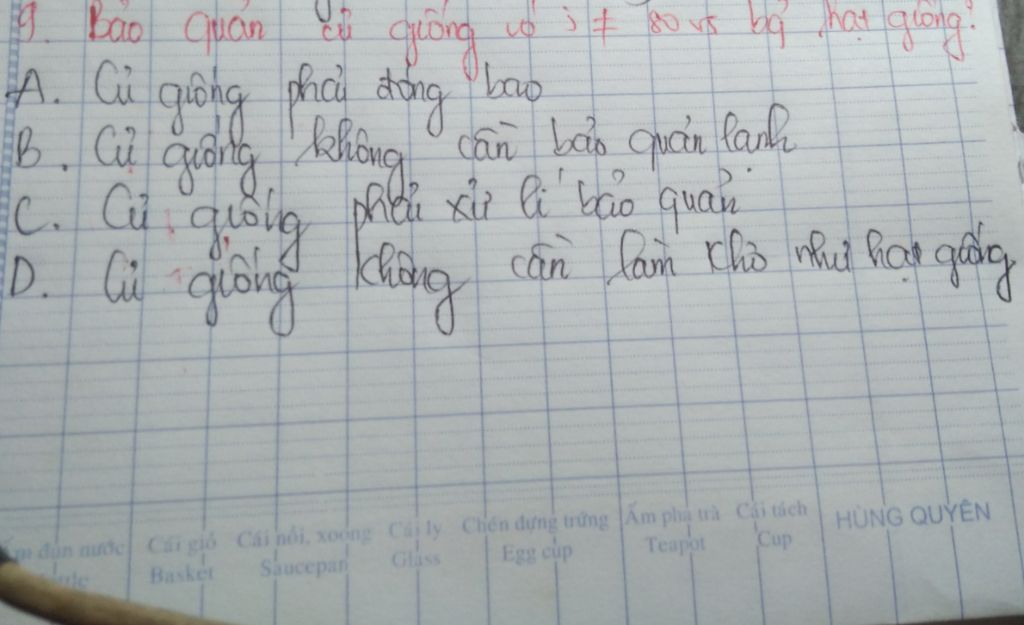 9. Bảo quản củ giống có j ≠ so vs bq hạt giống?
A. Củ giống phải đóng bao
B. Củ giống không cần bảo quản lạnh
C. Củ giống phải xử lí bảo quản
D. Củ giống không cần làm khô như hạt giống
đun nước Cái giỏ Cái nồi, xoong Cái ly Chén đựng trứng Ấm pha trà Cái tách HÙNG QUYÊN
Basket Saucepan Glass Egg cup Teapot Cup